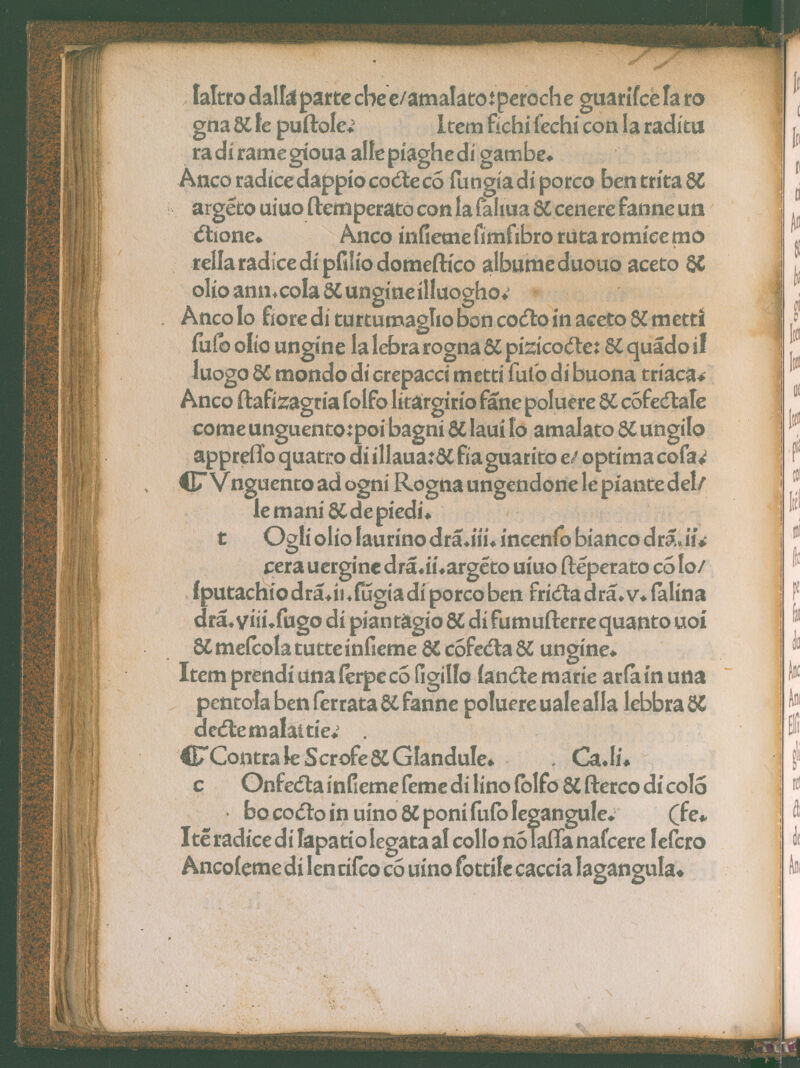 laltro dalla parte che e/amalato:peroche guariſce la ro
gna & le puſtole. Item fichi ſechi con la raditu
ra di rame gioua alle piaghe di gambe.
Anco radice dappio cocte cō ſungia di porco ben trita &
argēto uiuo ſtemperato con la ſaliua & cenere fanne un
ctione. Anco inſieme ſimfibro ruta romice mo
rella radice di pſilio domeſtico albume duouo aceto &
olio ann.cola & ungine illuogho.
Anco lo fiore di turtumaglio bon cocto in aceto & metti
ſuſo olio ungine la lebra rogna & pizicocte: & quādo il
luogo & mondo di crepacci metti ſuſo di buona triaca.
Anco ſtafizagria ſolfo litargirio fāne poluere & cōfectale
come unguento:poi bagni & laui lo amalato & ungilo
appreſſo quatro di illaua:& fia guarito e/ optima coſa.
¶ Vnguento ad ogni Rogna ungendone le piante del/
le mani & de piedi.
t Ogli olio laurino drā.iii. incenſo bianco drā.ii.
cera uergine drā.ii.argēto uiuo ſtēperato cō lo/
ſputachio drā.ii.ſūgia di porco ben fricta drā.v. ſalina
drā.viii.ſugo di piantagio & di fumuſterre quanto uoi
& meſcola tutte inſieme & cōfecta & ungine.
Item prendi una ſerpe cō ſigillo ſancte marie arſa in una
pentola ben ſerrata & fanne poluere uale alla lebbra &
decte malattie.
¶ Contra le Scrofe & Glandule. Ca.li.
c Onfecta inſieme ſeme di lino ſolfo & ſterco di colō
bo cocto in uino & poni ſuſo legangule. (fe.
Itē radice di lapatio legata al collo nō laſſa naſcere leſcro
Anco ſeme di lentiſco cō uino ſottile caccia lagangula.